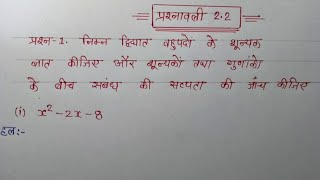 प्रश्नावली 2.2
प्रश्न-1. निम्न द्विघात बहुपदों के शून्यक
ज्ञात कीजिए और शून्यकों तथा गुणांकों
के बीच संबंध की सत्यता की जाँच कीजिए
(i) x² - 2x - 8
हल:-